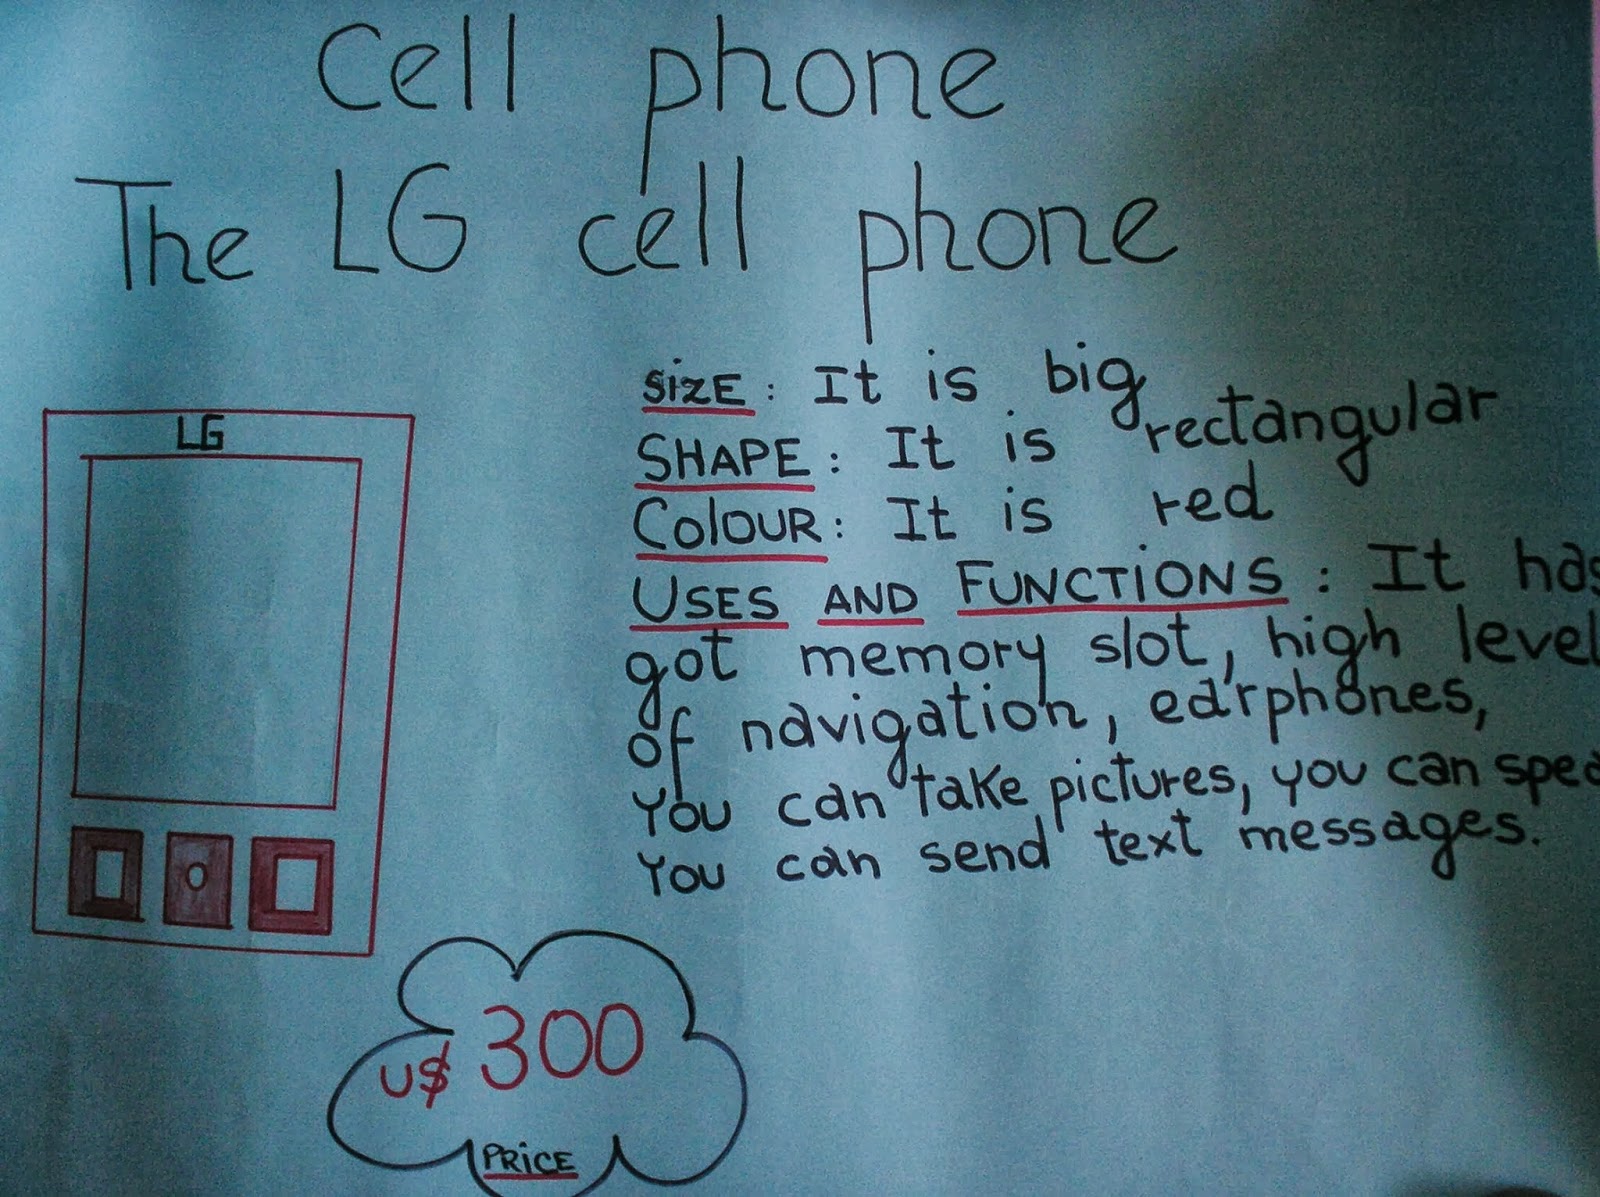 Cell phone
The LG cell phone
LG
SiZE: It is big
SHAPE: It is rectangular
ColOUR: It is red
USES AND FUNCTiONS: It has
got memory slot, high level
of navigation, earphones,
You can take pictures, you can spea
You can send text messages.
U$ 300
PRiCE